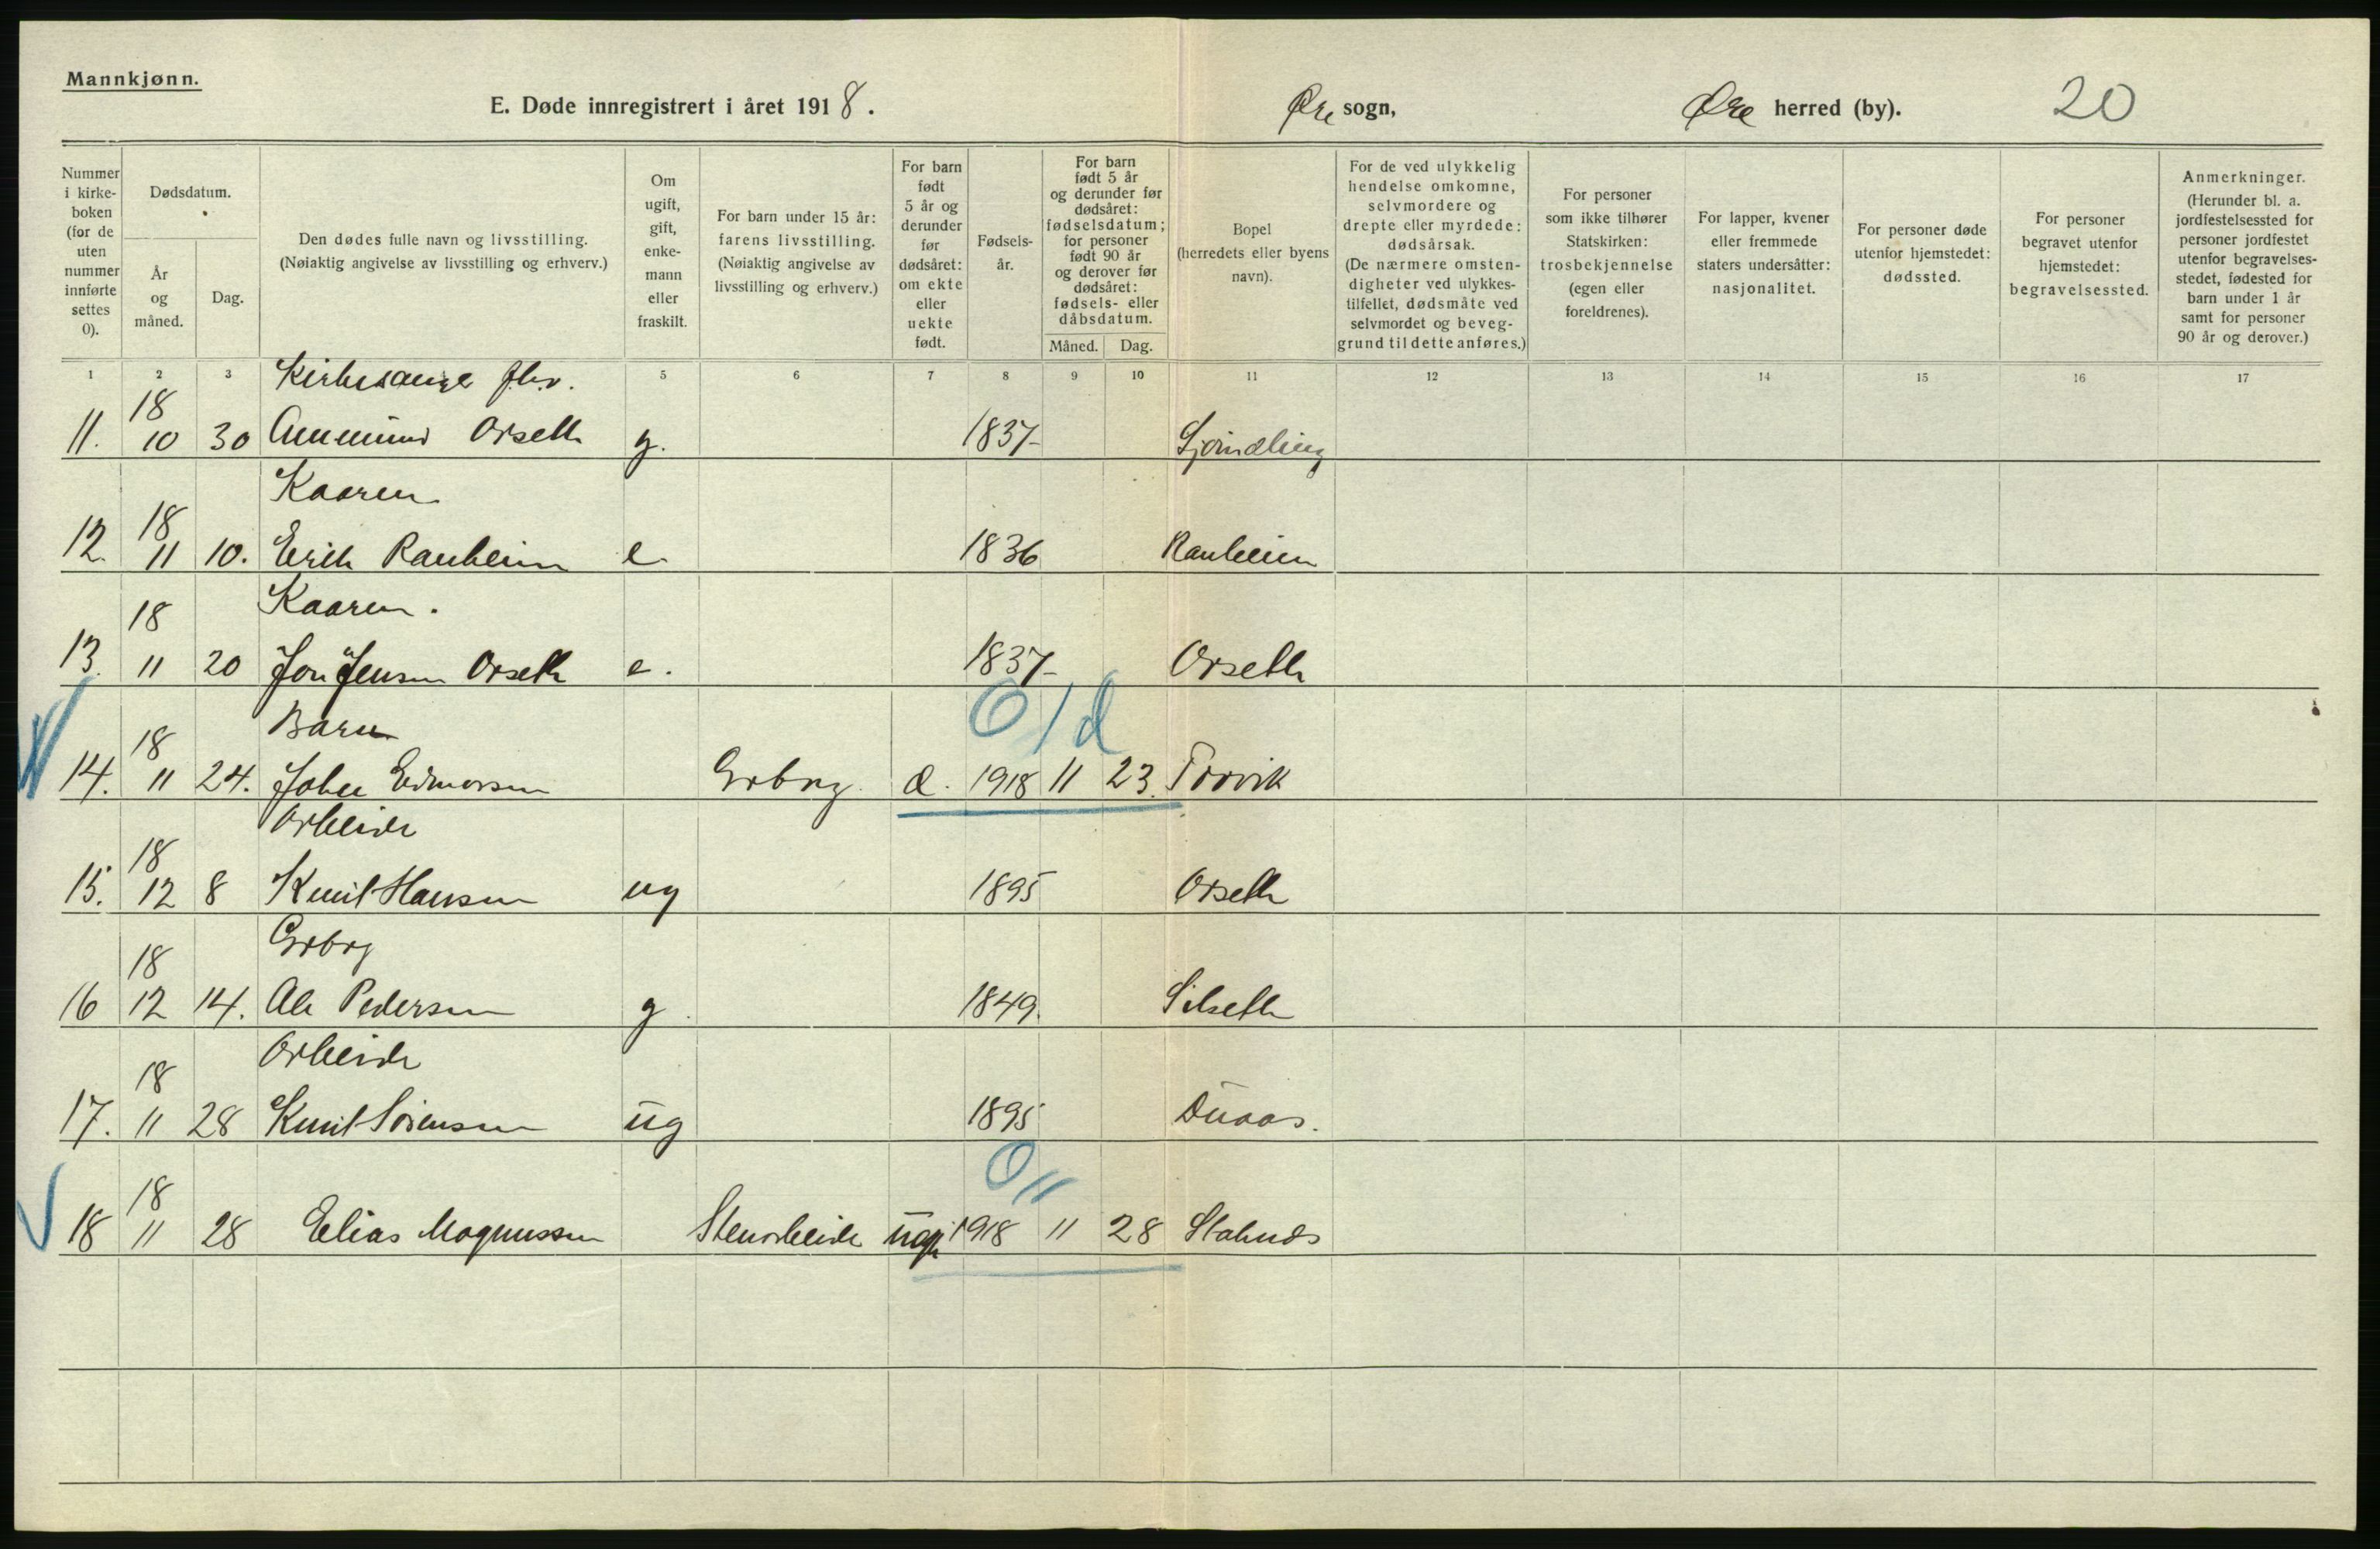 Mannkjønn.
E. Døde innregistrert i året 1918. Øre sogn, Øre herred (by). 20
Nummer i kirke-boken (for de uten nummer innførte settes 0).
Dødsdatum.
År og måned.
Dag.
Den dødes fulle navn og livsstilling.
(Nøiaktig angivelse av livsstilling og erhverv.)
Om ugift, gift, enke-mann eller fraskilt.
For barn under 15 år: farens livsstilling. (Nøiaktig angivelse av livsstilling og erhverv.)
For barn født 5 år og derunder før dødsåret: om ekte eller uekte født.
Fødsels-år.
For barn født 5 år og derunder før dødsåret: fødselsdatum; for personer født 90 år og derover før dødsåret: fødsels- eller dåbsdatum.
Måned. Dag.
Bopel (herredets eller byens navn).
For de ved ulykkelig hendelse omkomne, selvmordere og drepte eller myrdede: dødsårsak. (De nærmere omsten-digheter ved ulykkes-tilfellet, dødsmåte ved selvmordet og beveg-grund til dette anføres.)
For personer som ikke tilhører Statskirken: trosbekjennelse (egen eller foreldrenes).
For lapper, kvener eller fremmede staters undersåtter: nasjonalitet.
For personer døde utenfor hjemstedet: dødssted.
For personer begravet utenfor hjemstedet: begravelsessted.
Anmerkninger. (Herunder bl. a. jordfestelsessted for personer jordfestet utenfor begravelses-stedet, fødested for barn under 1 år samt for personer 90 år og derover.)
1 2 3 5 6 7 8 9 10 11 12 13 14 15 16 17
18
11. 10 30 Orseth g. 1837
Kaaren
18
12. 11 10. Erik Ranheim e 1836 Ranheim
Kaaren.
18
13. 11 20 Jon Jensen Orseth e. 1837 Orseth
0/d
Barn
18
14. 11 24. Grbrg. 1918 11 23. Torvik
Arbeide
18
15. 12 8 Knut Hansen ug 1895 Orseth
Grbrg
18
16 12 14. Ole Pedersen g 1849. Silseth
Arbeide
18
17. 11 28 Knut Sørensen ug 1895
0/11
18
18 11 28 Elias Magnussen Stenarbeide 1918 11 28